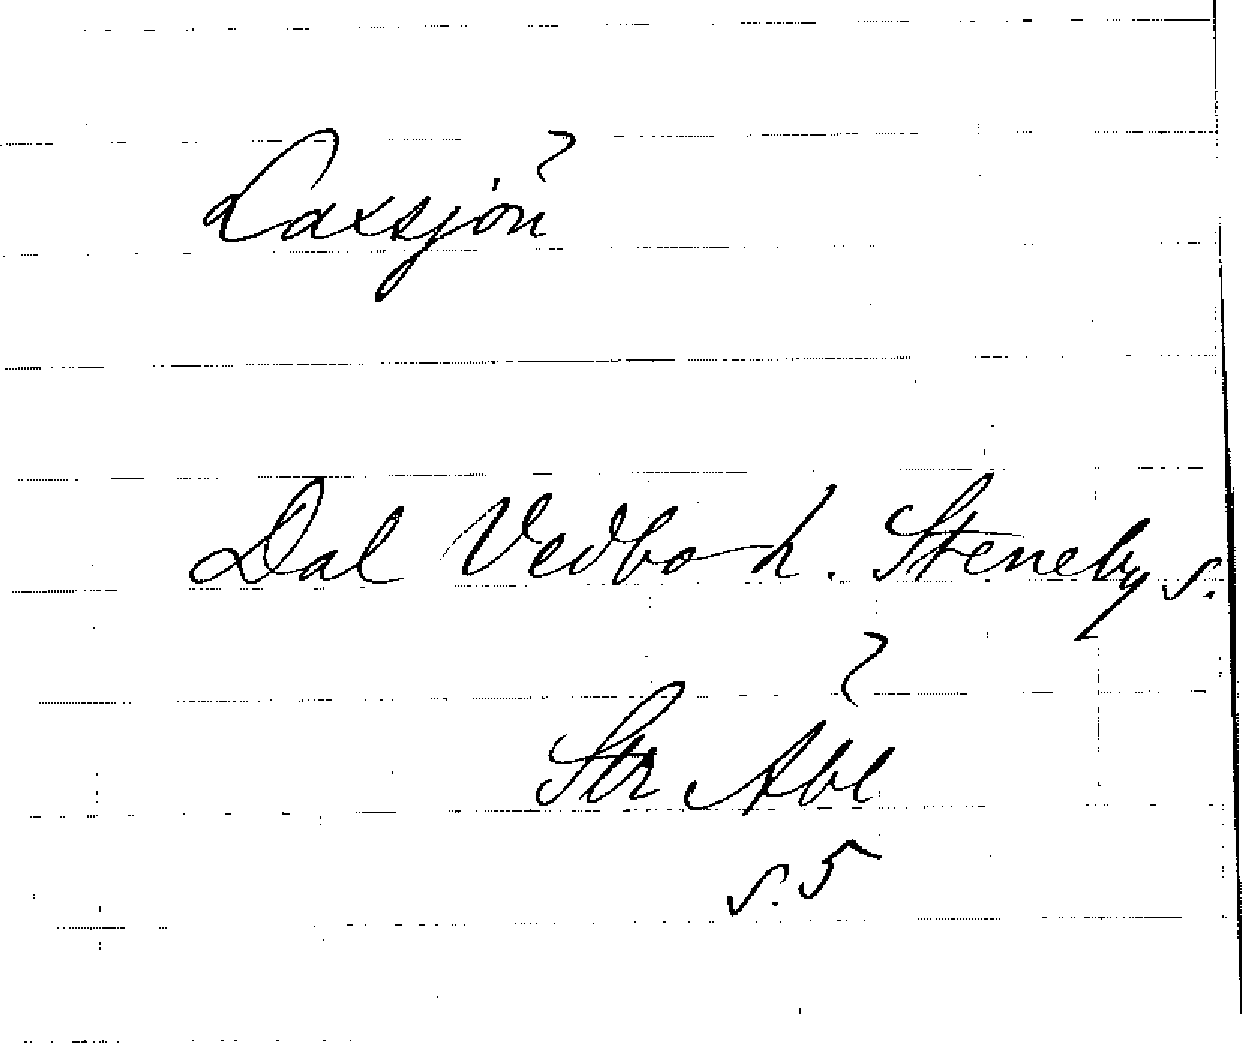 Laxsjön
Dal Vedbo h. Steneby s.
Str Abl
s. 5